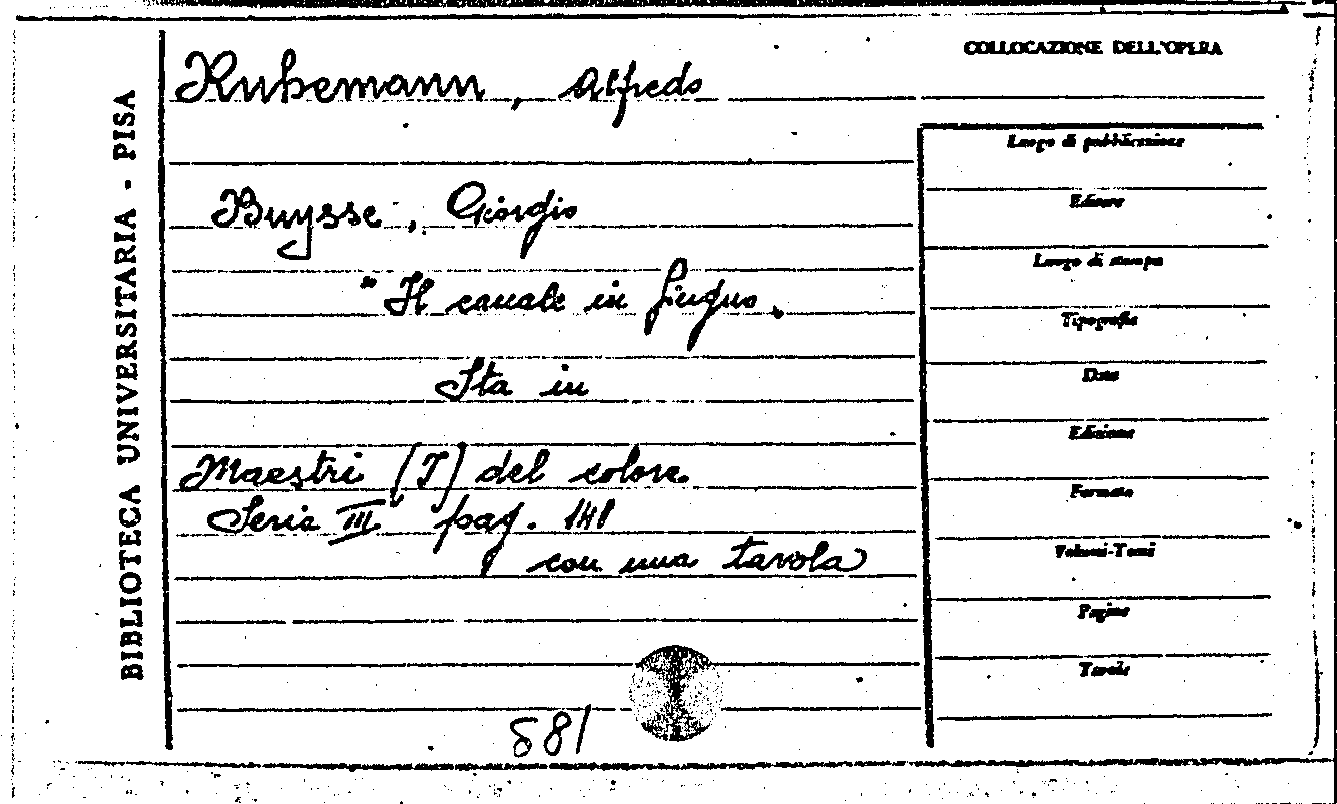 BIBLIOTECA UNIVERSITARIA - PISA
COLLOCAZIONE DELL'OPERA
Kuhemann, Alfredo
Buysse, Giorgio
"Il canale in
Sta in
Maestri (I) del colore.
Serie III pag. 141
con una tavola
881
Luogo di pubblicazione
Editore
Luogo di stampa
Tipografia
Data
Edizione
Formato
Volumi-Tomi
Pagine
Tavole